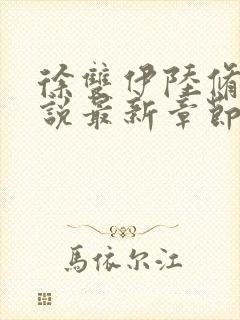 徐雙伊陸脩
說最新章節
馬依尔江